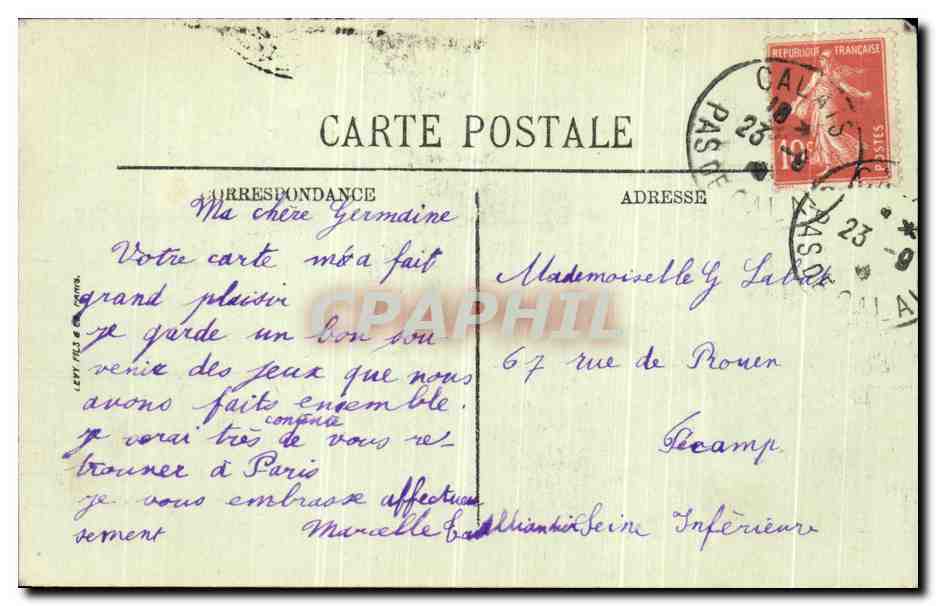 REPUBLIQUE FRANÇAISE
10 c
POSTES
CALAIS
18 *
23 -9
PAS DE CALAIS
*
23 -9
PAS DE CALAIS
CARTE POSTALE
CORRESPONDANCE
Ma chère Germaine
Votre carte m'a fait
grand plaisir
je garde un bon sou
venir des jeux que nous
avons faits ensemble.
je serai très contente
de vous re-
trouver à Paris
je vous embrasse affectueu
sement Marcelle
ADRESSE
Mademoiselle G
67 rue de Rouen
Fécamp
Seine Inférieure
LEVY FILS & Cie PARIS.
CPAPHIL